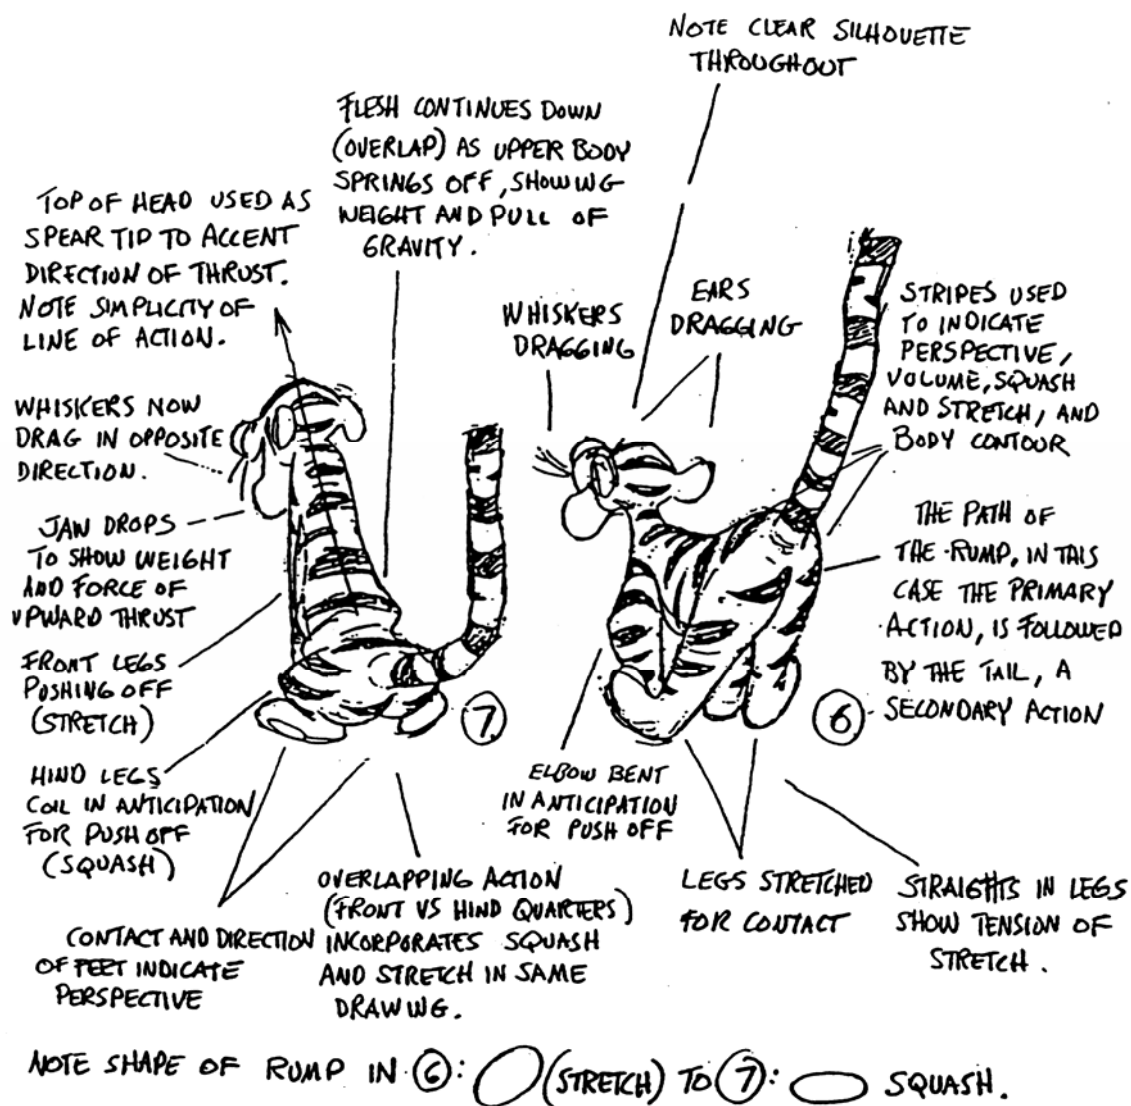 NOTE CLEAR SILHOUETTE
THROUGHOUT
FLESH CONTINUES DOWN
(OVERLAP) AS UPPER BODY
SPRINGS OFF, SHOWING
WEIGHT AND PULL OF
GRAVITY.
TOP OF HEAD USED AS
SPEAR TIP TO ACCENT
DIRECTION OF THRUST.
NOTE SIMPLICITY OF
LINE OF ACTION.
WHISKERS
DRAGGING
EARS
DRAGGING
STRIPES USED
TO INDICATE
PERSPECTIVE,
VOLUME, SQUASH
AND STRETCH, AND
BODY CONTOUR
WHISKERS NOW
DRAG IN OPPOSITE
DIRECTION.
JAW DROPS
TO SHOW WEIGHT
AND FORCE OF
UPWARD THRUST
THE PATH OF
THE RUMP, IN THIS
CASE THE PRIMARY
ACTION, IS FOLLOWED
BY THE TAIL, A
SECONDARY ACTION
FRONT LEGS
PUSHING OFF
(STRETCH)
7
6
HIND LEGS
COIL IN ANTICIPATION
FOR PUSH OFF
(SQUASH)
ELBOW BENT
IN ANTICIPATION
FOR PUSH OFF
CONTACT AND DIRECTION
OF FEET INDICATE
PERSPECTIVE
OVERLAPPING ACTION
(FRONT VS HIND QUARTERS)
INCORPORATES SQUASH
AND STRETCH IN SAME
DRAWING.
LEGS STRETCHED
FOR CONTACT
STRAIGHTS IN LEGS
SHOW TENSION OF
STRETCH.
NOTE SHAPE OF RUMP IN 6: (STRETCH) TO 7: SQUASH.